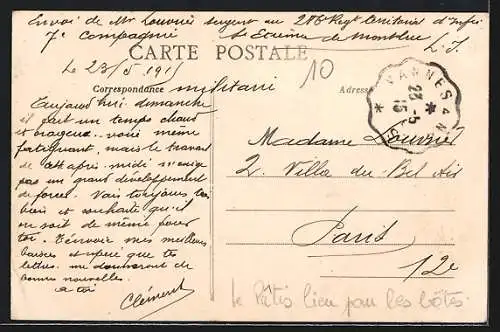 Envoi de Mr Louvrier sergent au 286 Regt territorial d'Infrie
7e Compagnie St Etienne de Montluc L. I.
CARTE POSTALE
Le 23/5 1915
10
Correspondance militaire
Adresse
VANNES A N
23 -5
15
Aujourd'hui dimanche
il fait un temps chaud
et orageux voire même
fatigant, mais le travail
de cet après-midi n'exige
pas un grand développement
de forces. Vais toujours très
bien et souhaite qu'il
en soit de même pour
toi. T'envoie mes meilleurs
baisers et espère que tes
lettres me donneront de
bonnes nouvelles.
a toi
Clément
Madame Louvrier
2. Villa du Bel Air
Paris
12e
le lieu par les